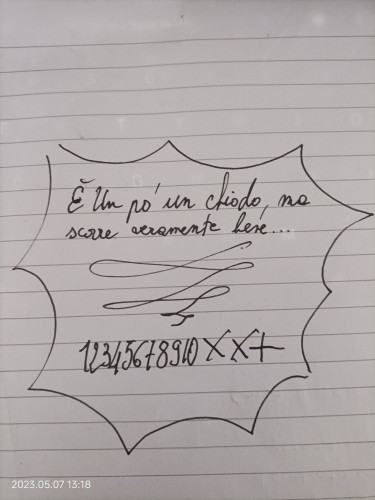 È Un pò un chiodo, ma
scorre veramente bene...
12345678910 X X +
2023.05.07 13:18